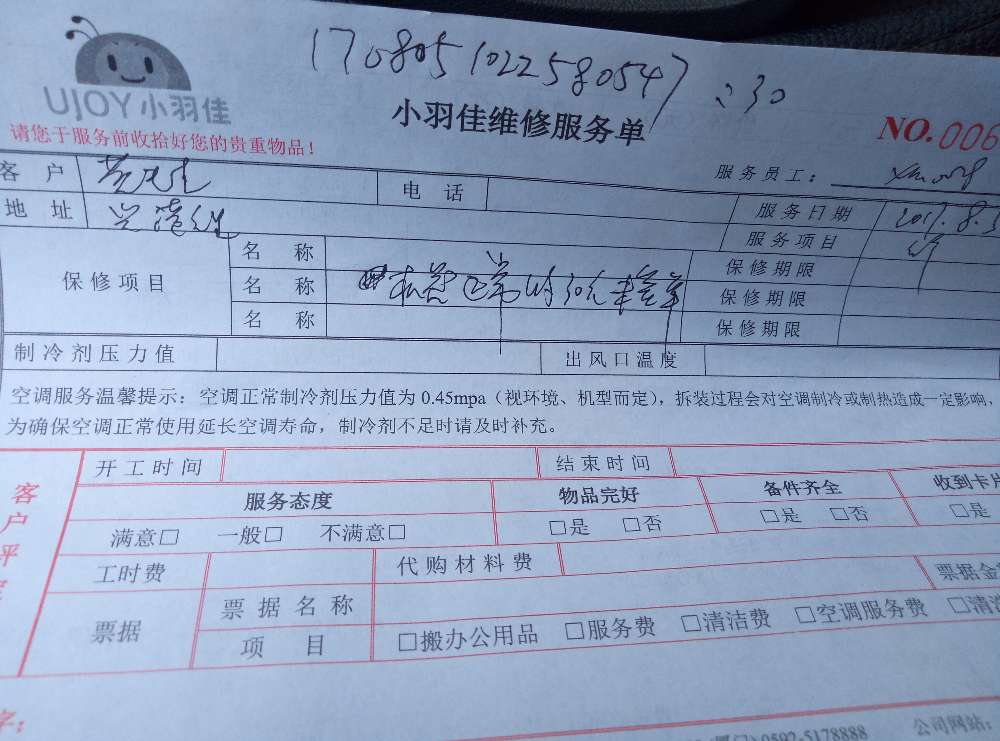 1708051022580547 :30
UJOY小羽佳
小羽佳维修服务单
NO.006
请您于服务前收拾好您的贵重物品！
服务员工：
客户 电话 服务日期 2017.8.5
地址 服务项目
保修项目 名称 保修期限
名称 保修期限
名称 保修期限
制冷剂压力值 出风口温度
空调服务温馨提示：空调正常制冷剂压力值为0.45mpa（视环境、机型而定），拆装过程会对空调制冷或制热造成一定影响，
为确保空调正常使用延长空调寿命，制冷剂不足时请及时补充。
客户评
开工时间 结束时间
服务态度 物品完好 备件齐全 收到卡片
满意□ 一般□ 不满意□ □是 □否 □是 □否 □是
工时费 代购材料费 票据金
票据 票据名称
项目 □搬办公用品 □服务费 □清洁费 □空调服务费 □清
字：
0592-5178888 公司网站：